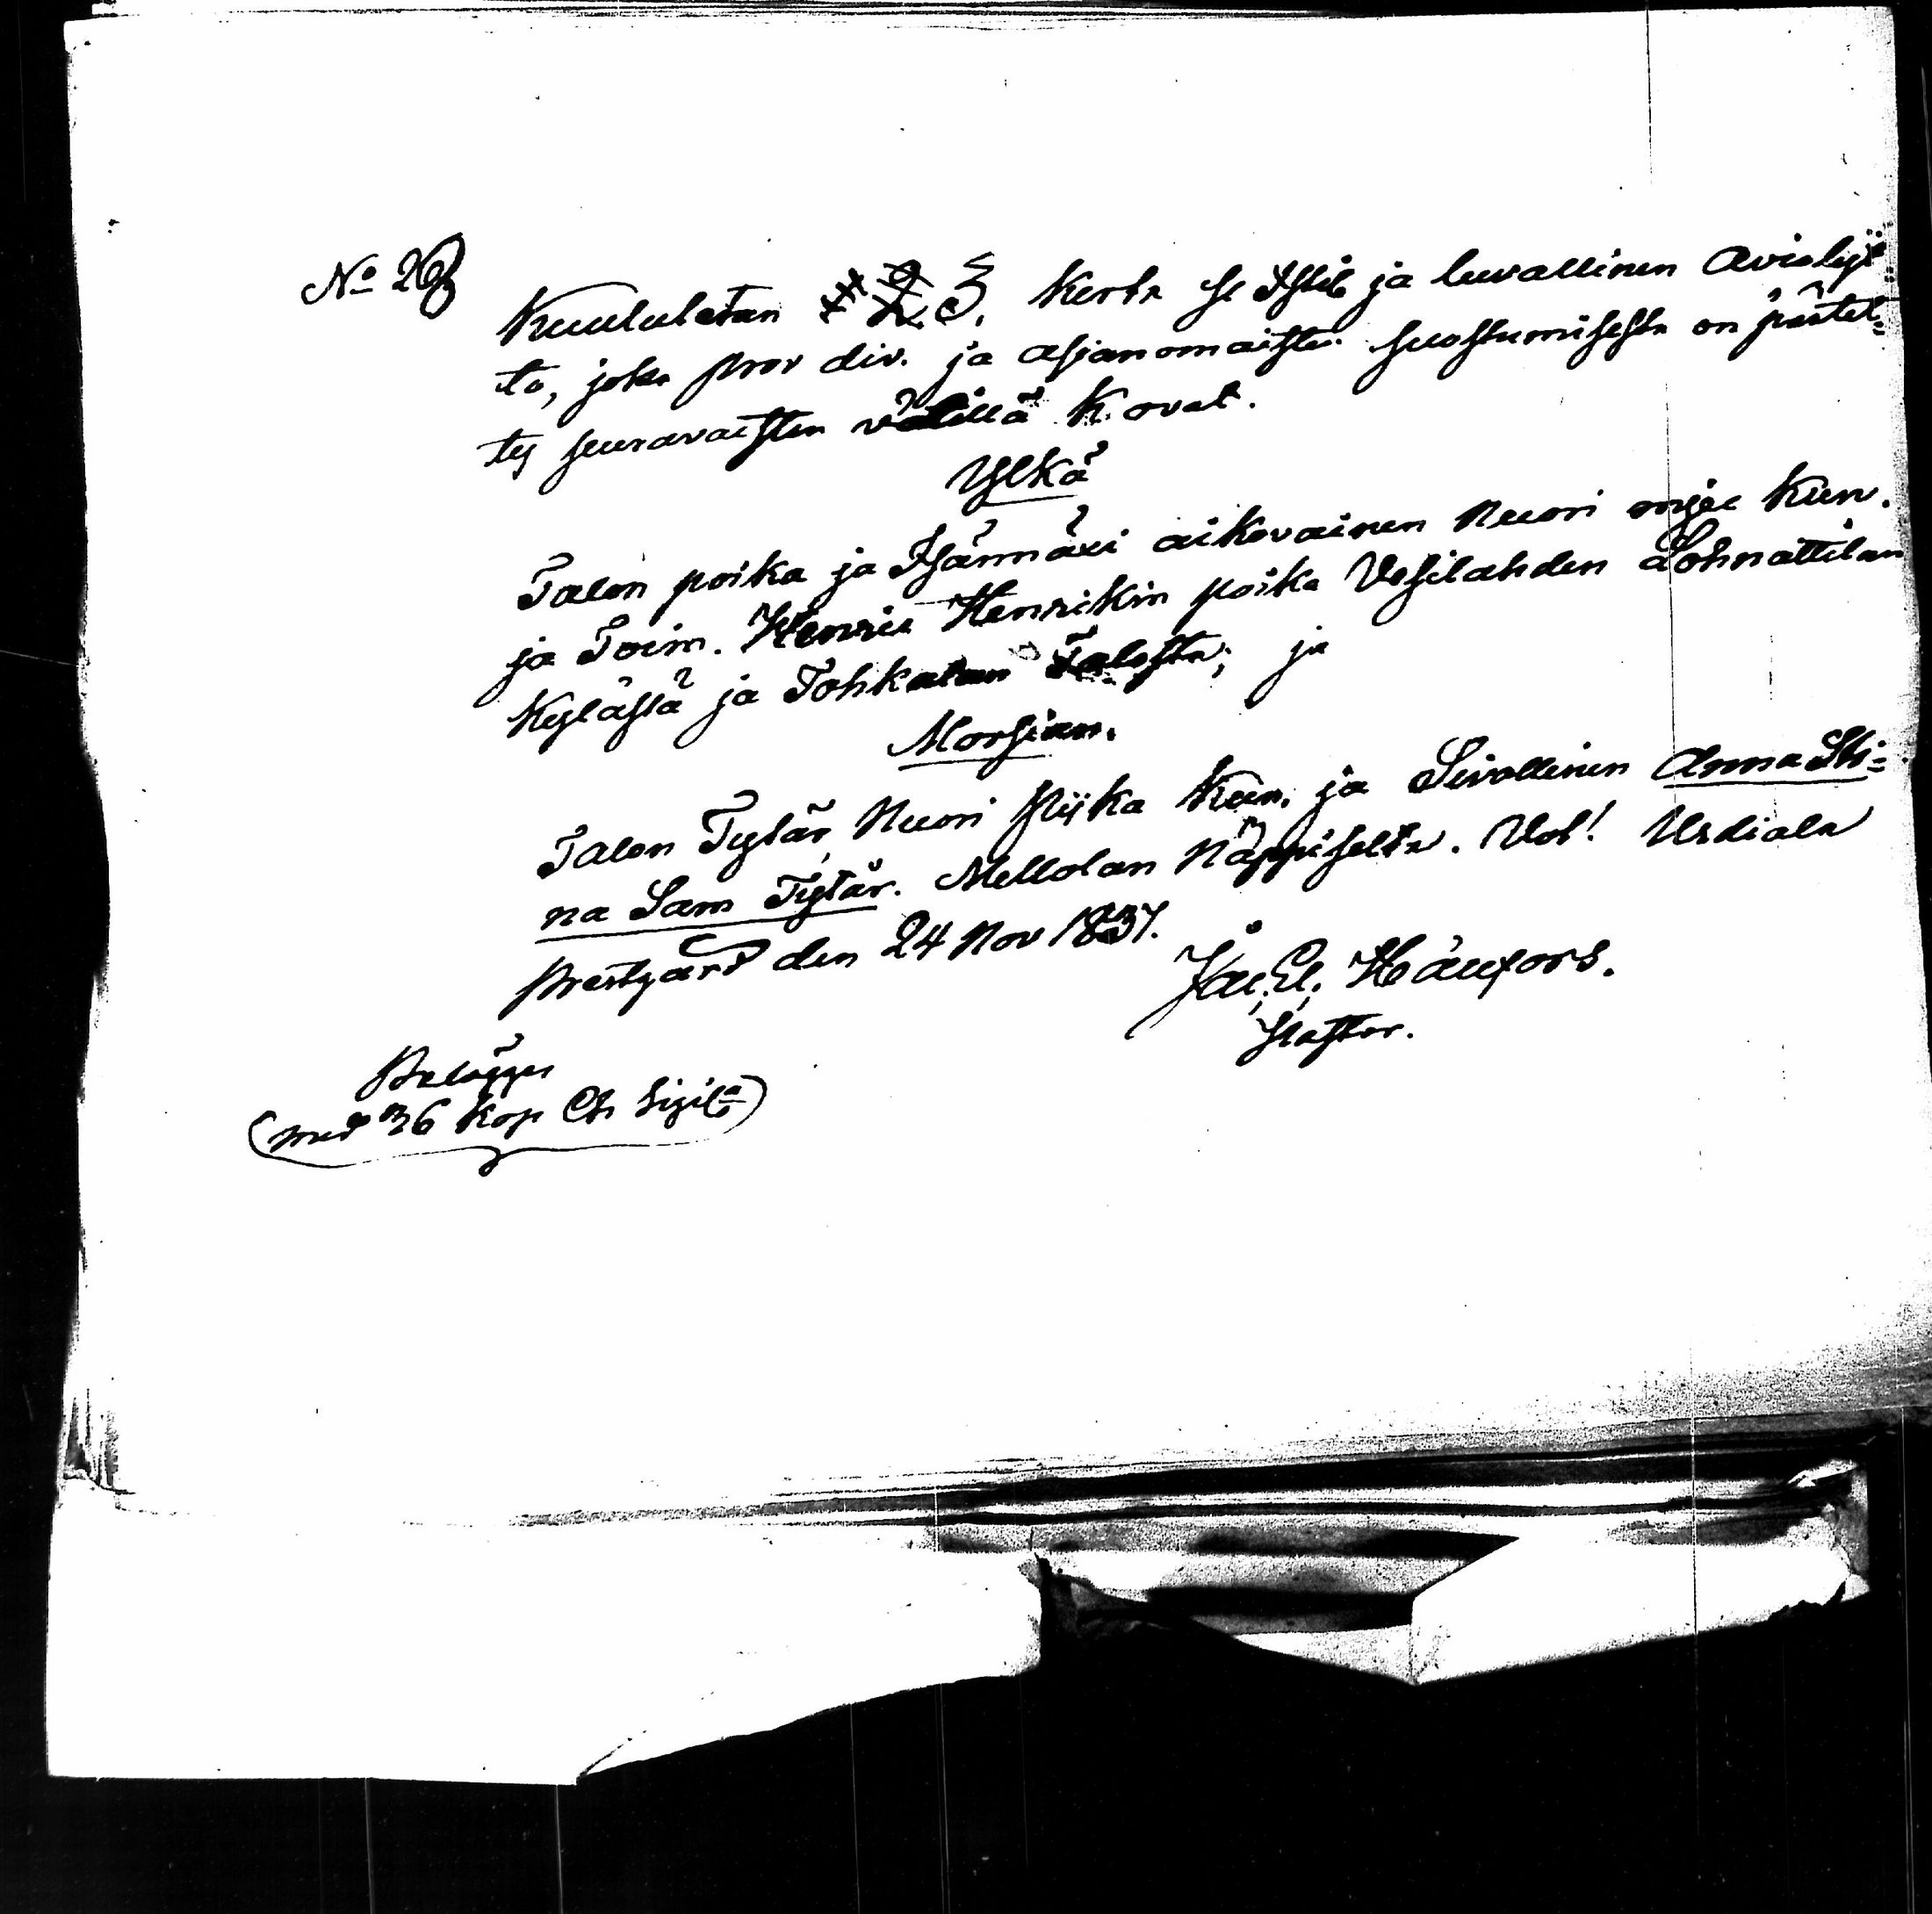 No 28
Kuulutetan 3, Kerta se ja luvallinen Aviolijt:
to, joka prov div. ja asianomaisten suostumisesta on pään tet=
ty seuravaisten välillä K ovat.
Ylkä
Talon poika ja Isännäxi aikovainen Nuori mjes Kun.
ja Toim. Henric Henrikin poika Vesilahden Sohnattilan
Kylästä ja Tohkalan Talosta; ja
Morsian.
Talon Tytär, Nuori Pijka Kun. ja Sivollinen Anna Sti=
na Sam Tytär. Mellolan Näppiseltä. Vot! Urdiala
Prestgård den 24 Nov 1837.
Jac. El. Häufors.
Pastor.
Belägges
(med 36 Kop Ch Sigil)